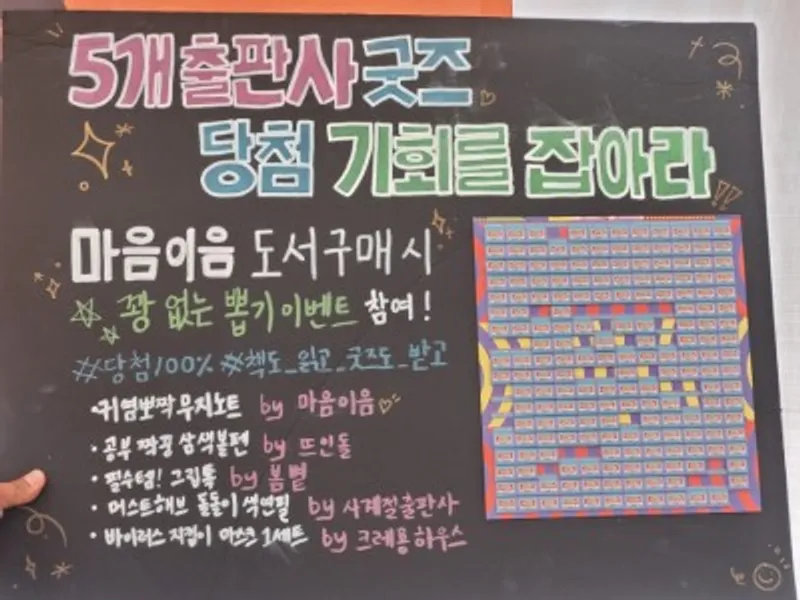 5개 출판사 굿즈
당첨 기회를 잡아라!!
마음이음 도서구매 시
꽝 없는 뽑기 이벤트 참여!
#당첨100% #책도_읽고_굿즈도_받고
•귀염뽀짝 무지노트 by 마음이음
•공부 짝꿍 삼색볼펜 by 뜨인돌
•필수템! 그립톡 by 봄볕
•머스트해브 돌돌이 색연필 by 사계절출판사
•바이러스 지킴이 마스크 1세트 by 크레용하우스